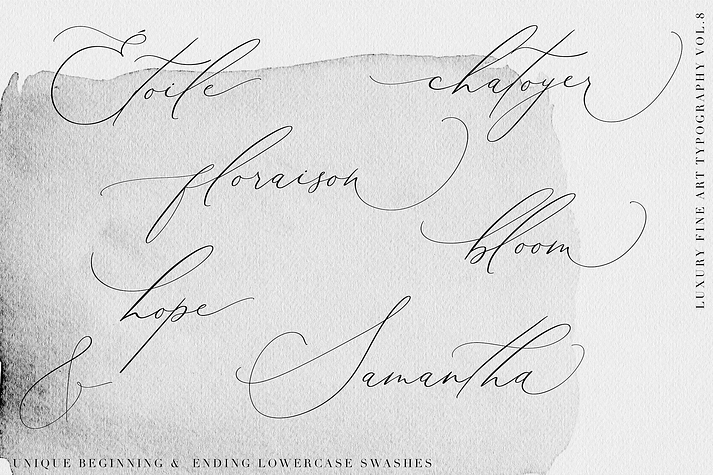 Etoile
chatoyer
floraison
bloom
hope
&
Samantha
UNIQUE BEGINNING & ENDING LOWERCASE SWASHES
LUXURY FINE ART TYPOGRAPHY VOL.8